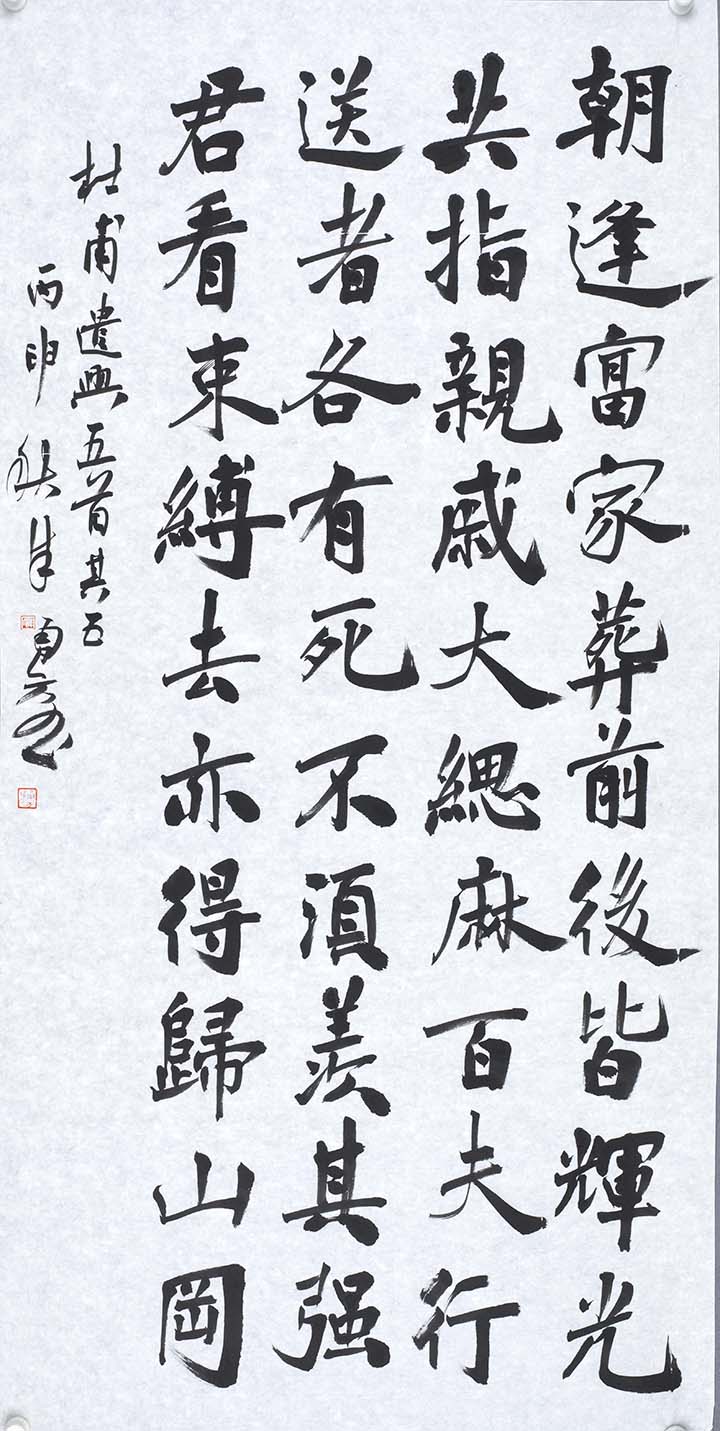 朝逢富家葬前後皆輝光
共指親戚大緦麻百夫行
送者各有死不湏羨其强
君看束縛去亦得歸山岡
杜甫遣興五首其五
丙申秋朱勇方书